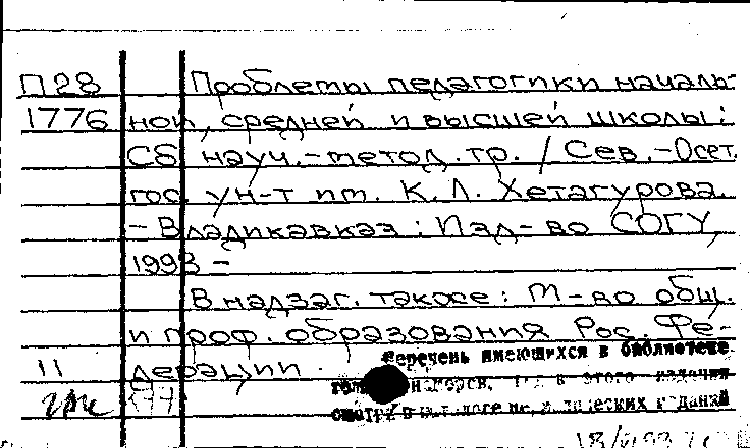 П28 Проблемы педагогики началь-
1776 ной, средней и высшей школы:
Сб науч.-метод. тр. / Сев.-Осет.
гос. ун-т им. К. Л. Хетагурова.
- Владикавказ : Изд-во СОГУ,
1998 -
В надзаг. также: М-во общ.
и проф. образования Рос. Фе-
11 дерации.
Перечень имеющихся в библиотеке
этого издания
смотри в каталоге изданий